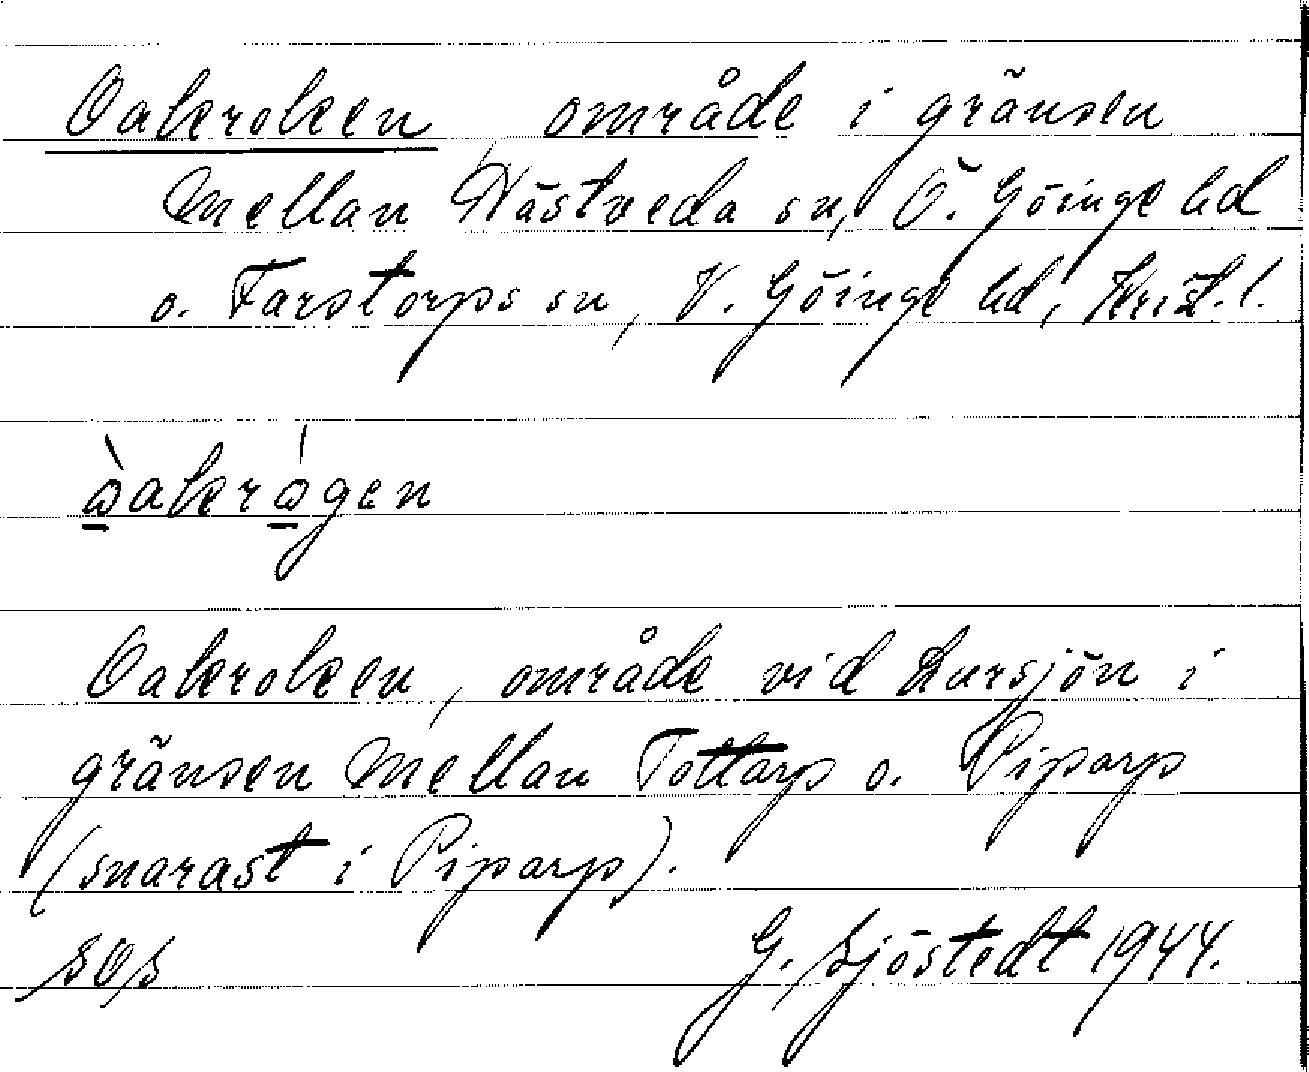 Oakroken område i gränsen
mellan Hästveda sn, Ö. Göinge hd
o. Farstorps sn, V. Göinge hd, Krist. l.
ὼakrǿgen
Oakroken, område vid Lursjön i
gränsen mellan Tottarp o. Piparp
(snarast i Piparp).
SOS G. Sjöstedt 1944.